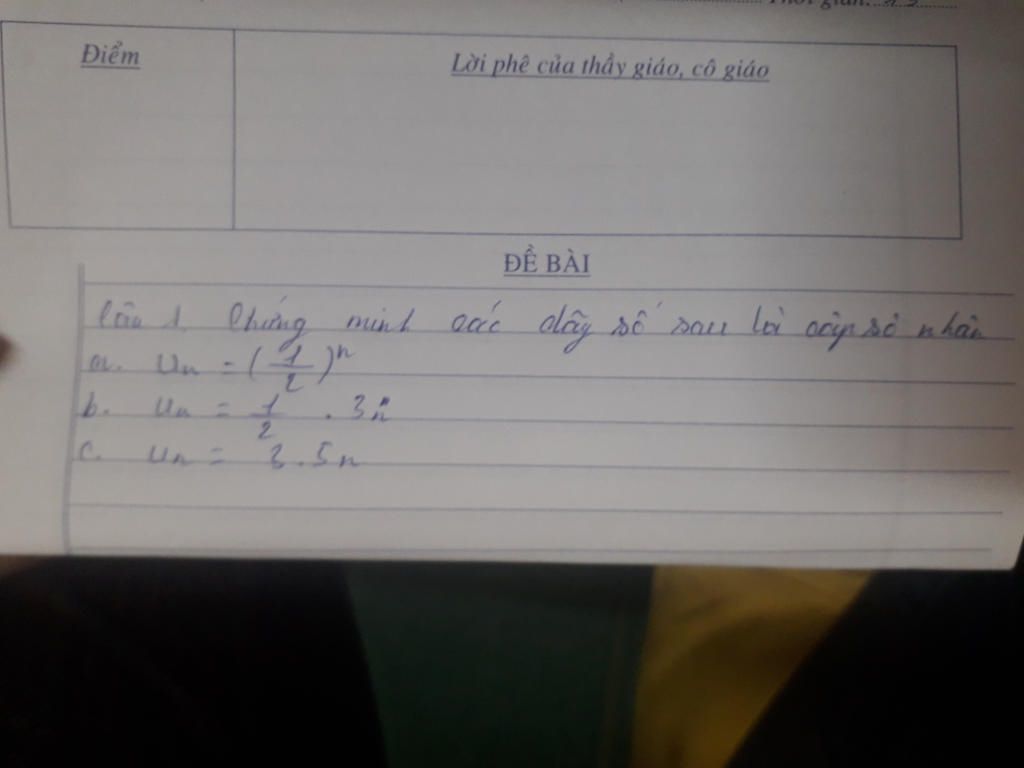 Thời gian:
Điểm
Lời phê của thầy giáo, cô giáo
ĐỀ BÀI
Câu 1. Chứng minh các dãy số sau là cấp số nhân
a. Un = (1/2)^n
b. Un = 1/2 . 3n
c. Un = 3.5n